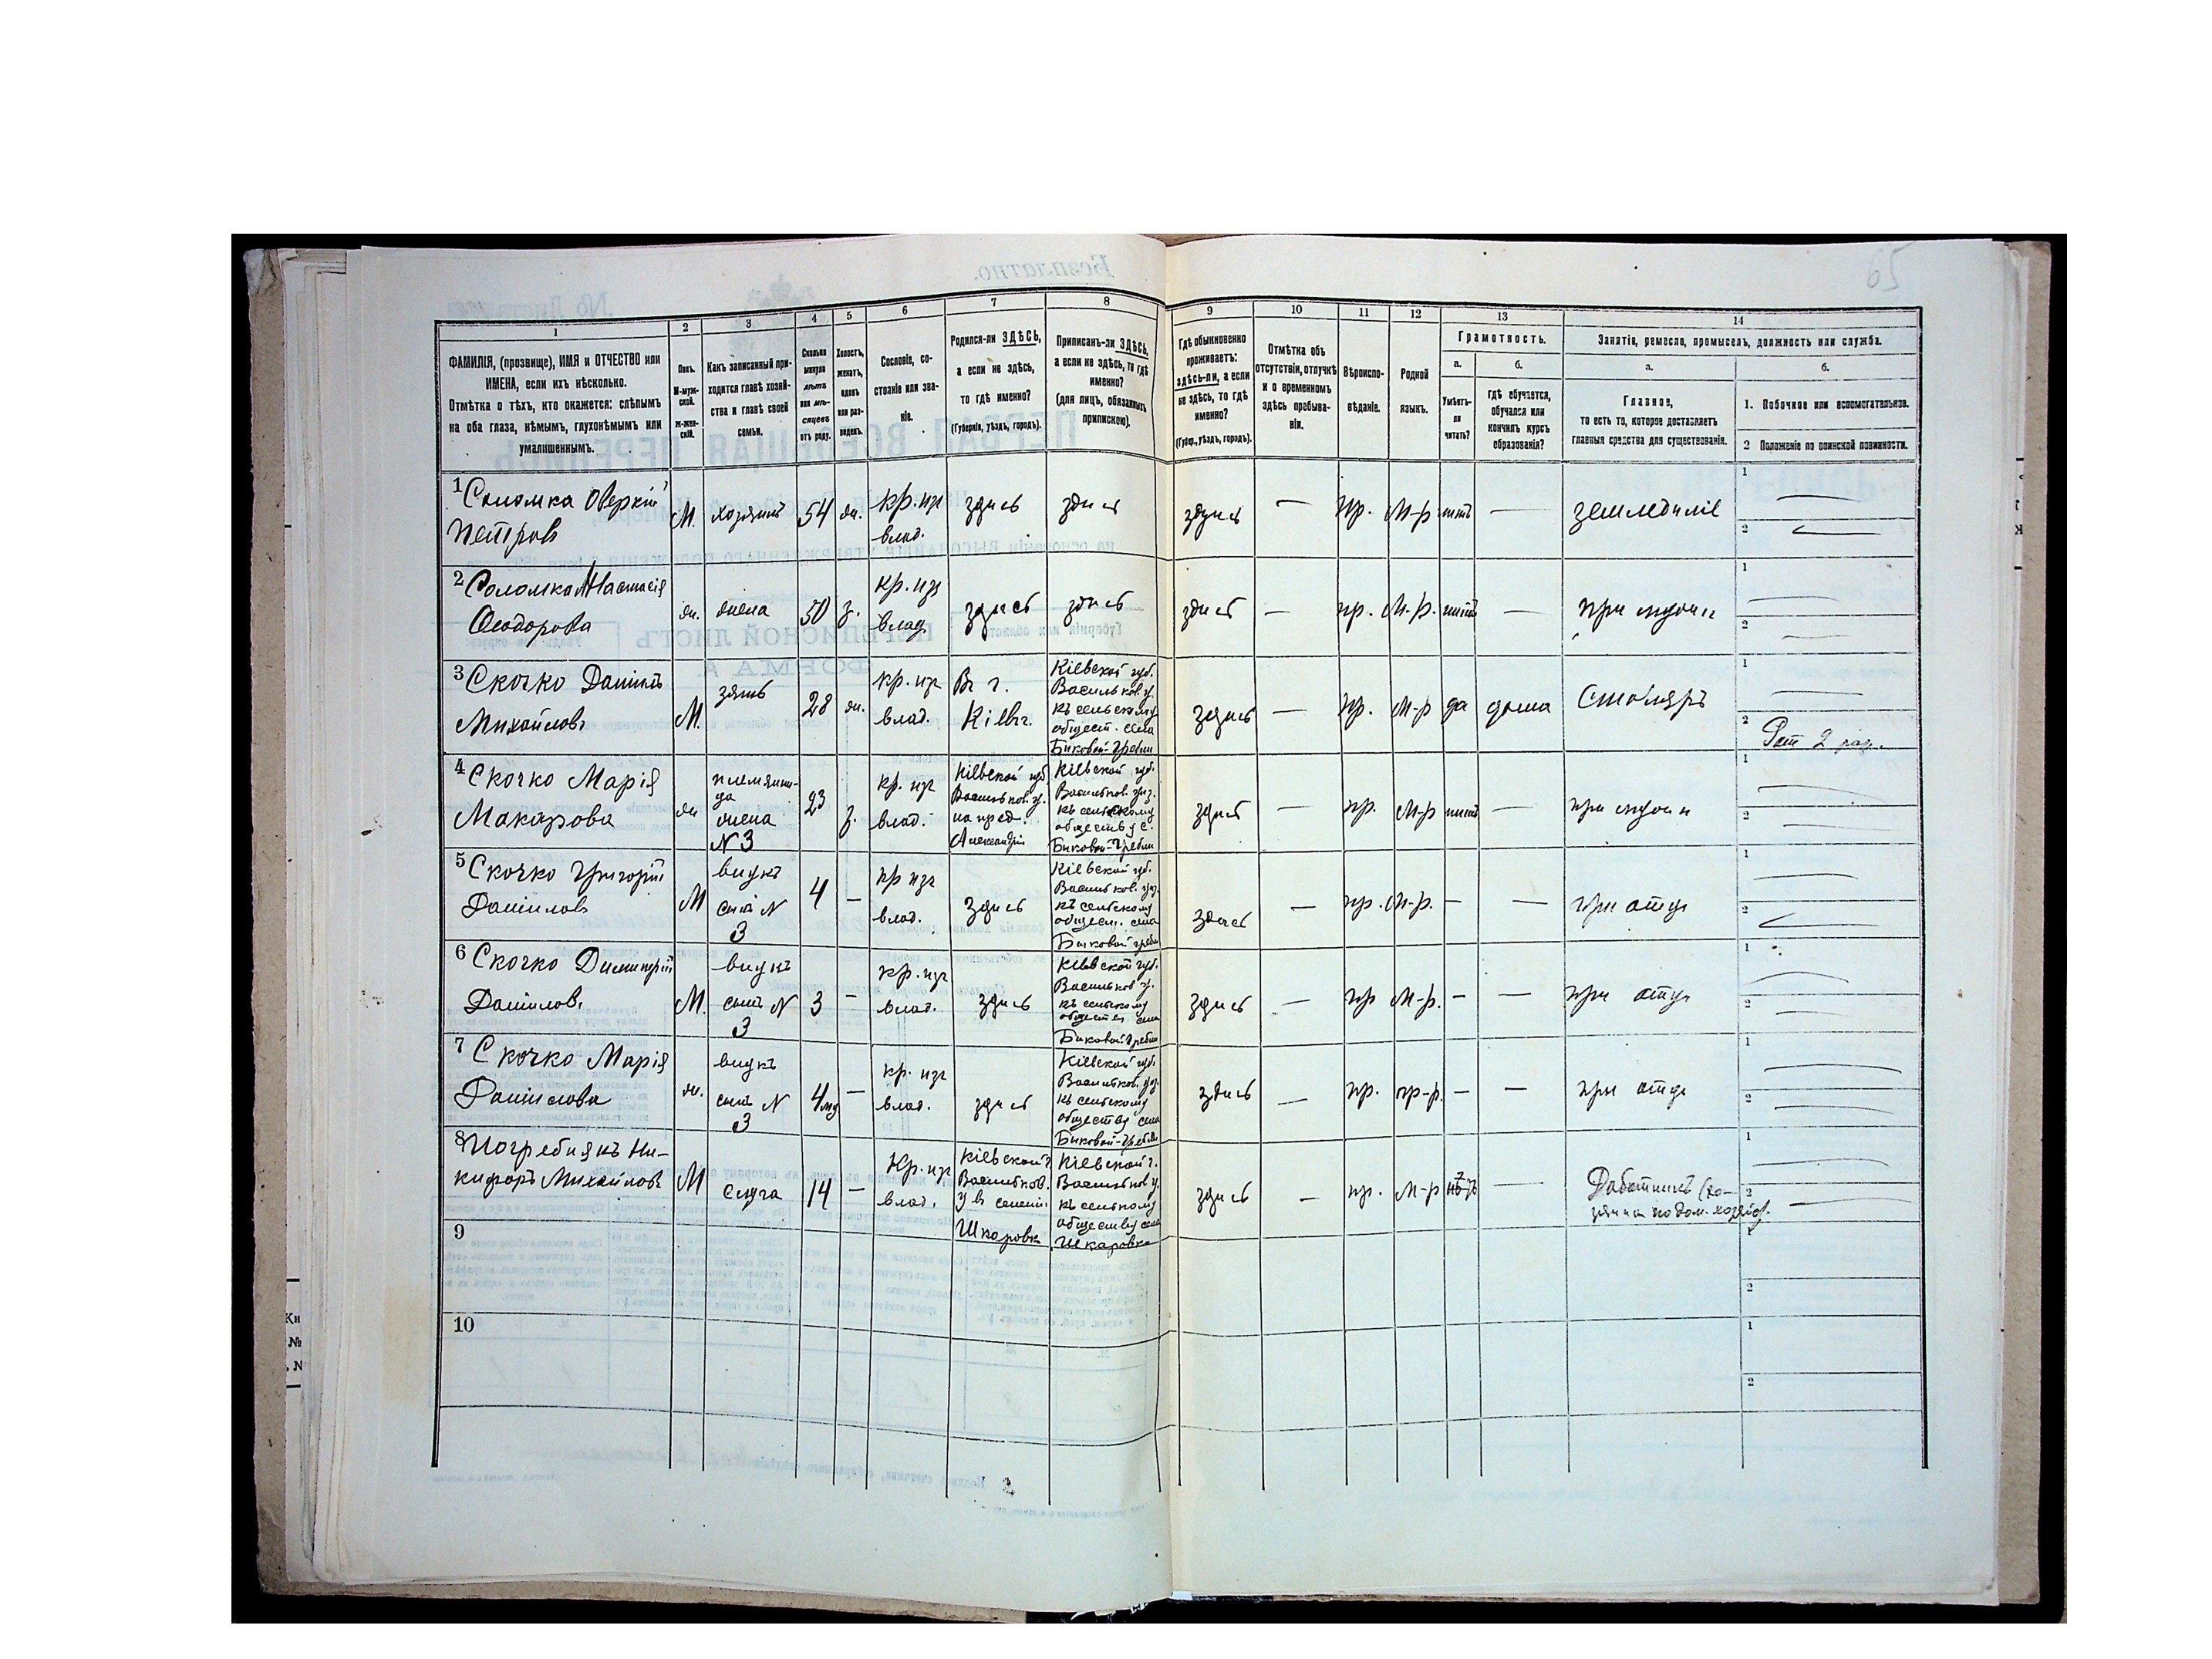 65
1 2 3 4 5 6 7 8 9 10 11 12 13 14
ФАМИЛІЯ, (прозвище), ИМЯ и ОТЧЕСТВО или
ИМЕНА, если ихъ нѣсколько.
Отмѣтка о тѣхъ, кто окажется: слѣпымъ
на оба глаза, нѣмымъ, глухонѣмымъ или
умалишеннымъ.
Полъ.
М-муж-
ской.
ж-жен-
скій.
Какъ записанный при-
ходится главѣ хозяй-
ства и главѣ своей
семьи.
Сколько
минуло
лѣтъ
или мѣ-
сяцевъ
отъ роду.
Холостъ,
женатъ,
вдовъ
или раз-
веденъ.
Сословіе, со-
стояніе или зва-
ніе.
Родился-ли ЗДѢСЬ,
а если не здѣсь,
то гдѣ именно?
(Губернія, уѣздъ, городъ).
Приписанъ-ли ЗДѢСЬ,
а если не здѣсь, то гдѣ
именно?
(для лицъ, обязанныхъ
припискою).
Гдѣ обыкновенно
проживаетъ:
здѣсь-ли, а если
не здѣсь, то гдѣ
именно?
(Губер., уѣздъ, городъ).
Отмѣтка объ
отсутствіи, отлучкѣ
и о временномъ
здѣсь пребыва-
ніи.
Вѣроиспо-
вѣданіе.
Родной
языкъ.
Грамотность.
а.
Умѣетъ-
ли
читать?
б.
Гдѣ обучается,
обучался или
кончилъ курсъ
образованія?
Занятія, ремесло, промыселъ, должность или служба.
а.
Главное,
то есть то, которое доставляетъ
главныя средства для существованія.
б.
1. Побочное или вспомогательное.
2 Положеніе по воинской повинности.
1 Соломка Оверкій
Петровъ
М. хозяинъ 54 ж. кр. изъ
влад.
здись здись здись — пр. М-р. нитъ — земледиліе
1 —
2 —
2 Соломка Настасія
Ѳеодорова
ж. жена 50 з. кр. изъ
влад.
здись здись здись — пр. М-р. нитъ — при мужи
1 —
2 —
3 Скочко Даніилъ
Михайловъ
М. зять 28 ж. кр. изъ
влад.
Въ г.
Кіевѣ.
Кіевской губ.
Васильков. у.
къ сельскому
общест. села
Быковой-Гребли
здись — пр. М-р да дома Столяръ
1 —
2 Рат 2 раз.
4 Скочко Марія
Макарова
ж племянни-
ца
жена
N 3
23 з. кр. изъ
влад.
Кіевской губ
Васильков. у.
на пред.
Александрія
Кіевской губ.
Васильков. уѣз.
къ сельскому
обществу с.
Быковой-Гребли
здись — пр. М-р нитъ — при мужи
1 —
2 —
5 Скочко Григорій
Даніиловъ
М внукъ
сынъ N
3
4 — кр изъ
влад.
здись
Кіевской губ.
Васильков. уѣз.
къ сельскому
общест. села
Быковой гребли
здись — пр. М-р. — — при отцѣ
1 —
2 —
6 Скочко Димитрій
Даніиловъ
М. внукъ
сынъ N
3
3 — кр. изъ
влад.
здись
Кіевской губ.
Васильков у.
къ сельскому
обществу села
Быковой Гребли
здись — пр М-р. — — при отцѣ
1 —
2 —
7 Скочко Марія
Даніилова
ж. внукъ
сынъ N
3
4 мѣ — кр. изъ
влад.
здись
Кіевской губ.
Васильков. уѣз.
къ сельскому
обществу села
Быковой-Гребли
здись — пр. пр-р. — — при отцѣ
1 —
2 —
8 Погребнякъ Ни-
кифоръ Михайловъ
М слуга 14 — Кр. изъ
влад.
Кіевской г.
Васильков.
у въ селеніи
Шкаровка
Кіевской г.
Васильков у.
къ сельскому
обществу села
Шкаровка
здись — пр. М-р нѣтъ — Работникъ (хо-
зяина по дом. хозяйс.
1 —
2 —
9
1
2
10
1
2